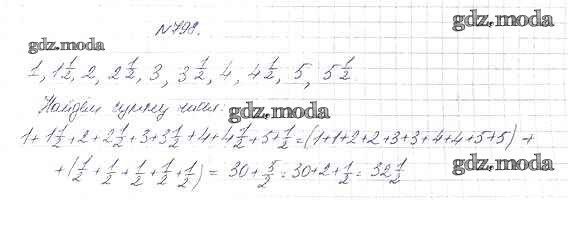 №798.
gdz.moda
gdz.moda
1, 1 1/2, 2, 2 1/2, 3, 3 1/2, 4, 4 1/2, 5, 5 1/2
Найдём сумму чисел:
gdz.moda
1+1 1/2+2+2 1/2+3+3 1/2+4+4 1/2+5+1/2=(1+1+2+2+3+3+4+4+5+5)+
+(1/2+1/2+1/2+1/2+1/2)=30+5/2=30+2+1/2=32 1/2
gdz.moda